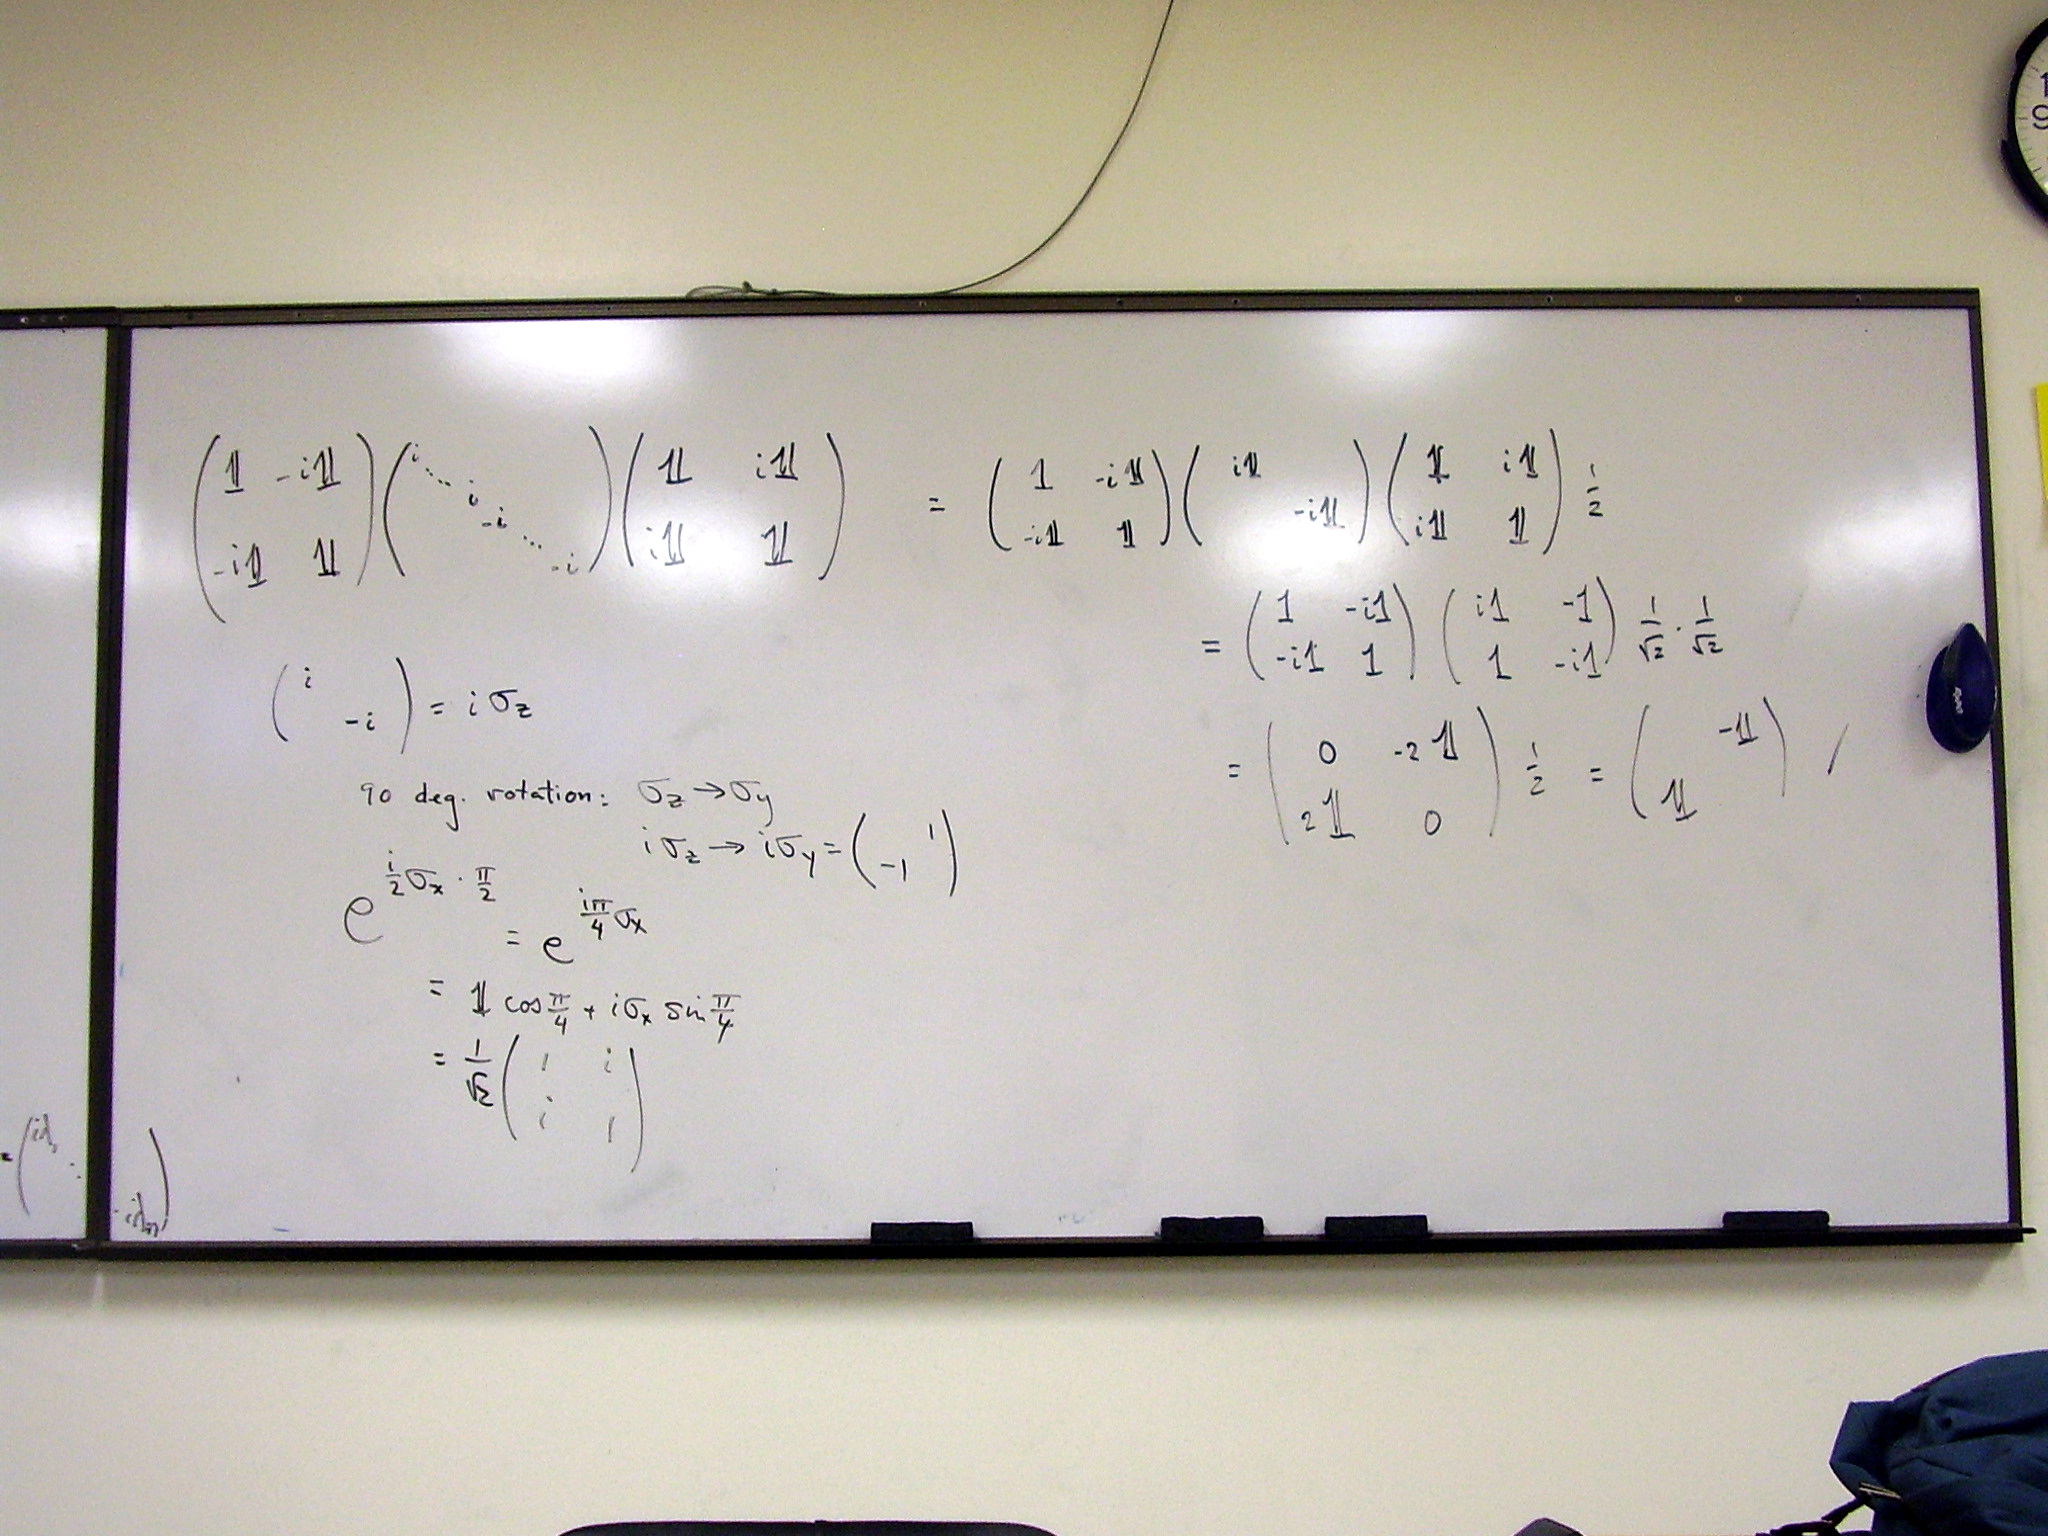 ( 𝟙 -i𝟙 ; -i𝟙 𝟙 ) ( i ⋱ i -i ⋱ -i ) ( 𝟙 i𝟙 ; i𝟙 𝟙 ) = ( 1 -i𝟙 ; -i𝟙 𝟙 ) ( i𝟙 ; -i𝟙 ) ( 𝟙 i𝟙 ; i𝟙 𝟙 ) 1/2
= ( 1 -i1 ; -i1 1 ) ( i1 -1 ; 1 -i1 ) 1/√2 · 1/√2
= ( 0 -2𝟙 ; 2𝟙 0 ) 1/2 = ( -𝟙 ; 𝟙 ) ✓
( i ; -i ) = i σ_z
90 deg. rotation: σ_z → σ_y
i σ_z → i σ_y = ( 1 ; -1 )
e^{i/2 σ_x · π/2} = e^{iπ/4 σ_x}
= 𝟙 cos π/4 + i σ_x sin π/4
= 1/√2 ( 1 i ; i 1 )
12
9